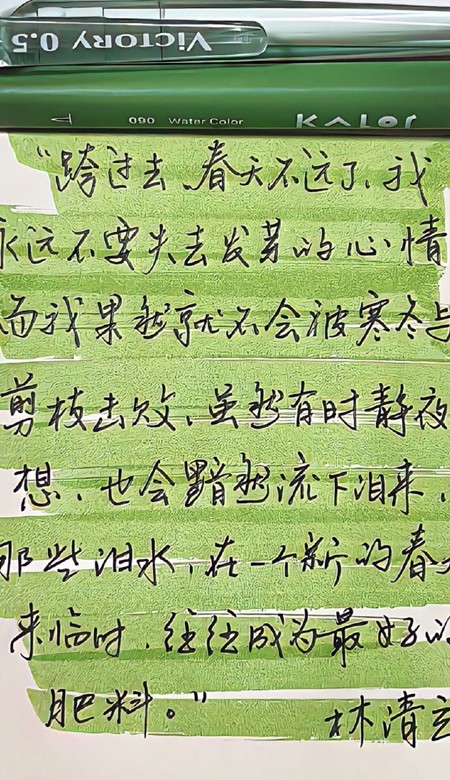 VICTORY 0.5
090 Water Color KALOR
“跨过去、春天不远了、我
永远不要失去发芽的心情
而我果然就不会被寒冬与
剪枝击败、虽然有时静夜
想、也会黯然流下泪来、
那些泪水、在一个新的春天
来临时、往往成为最好的
肥料。”
林清玄